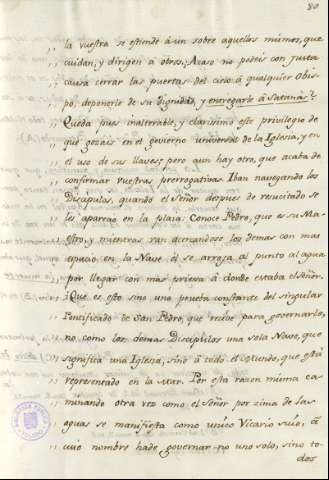 80
,, la vuestra se estiende áun sobre aquellos mismos, que
,, cuidan, y dirigen á otros. ¿Acaso no podeis con justa
,, causa cerrar las puertas del cielo á qualquier obis-
,, po, deponerle de su dignidad, y entregarle á Satanás?
,, Queda pues inalterable, y clarisimo este privilegio de
,, que gozais en el govierno universal de la Iglesia, y en
,, el uso de sus llaves; pero aun hay otro, que acaba de
,, confirmar vuestras prerrogativas. Iban navegando los
,, Discipulos, quando el Señor despues de resucitado se
,, les aparejo en la plaia: Conoce Pedro, que es su Ma-
,, estro, y mientras van acercandose los demas con mas
,, espacio en la Nave, él se arroja al punto al agua
,, por llegar con mas priesa á donde estaba el Señor.
,, ¿Que es esto sino una prueba constante del singular
,, Pontificado de San Pedro, que recive para governarlo,
,, no como los demas Discipulos una sola Nave, que
,, significa una Iglesia, sino á todo el Mundo, que está
,, representado en la Mar. Por esta razon misma ca-
,, minando otra vez como el Señor por zima de las
,, aguas se manifiesta como unico Vicario suio, á
,, cuio nombre hade governar no uno solo, sino to-
dos